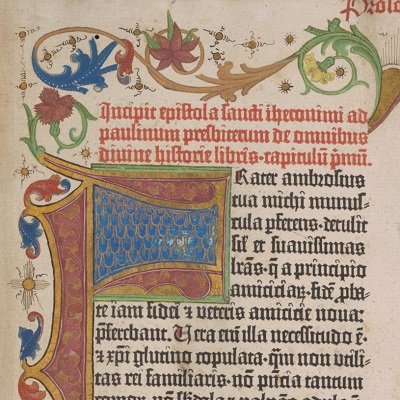 Prolo
Incipit epistola sancti iheronimi ad
paulinum presbiterum de omnibus
divine historie libris·capitulū pmū.
Frater ambrosius
tua michi munus-
cula pferens·detulit
sil' et suavissimas
lrās·q̄ a principio
amicicie
te iam fidei ⁊ veteris amicicie nova:
pferebant. Vera enī illa necessitudo ē·
⁊ xpi glutino copulata·qm̄ non utili-
tas rei familiaris·nō pn̄tia tantum